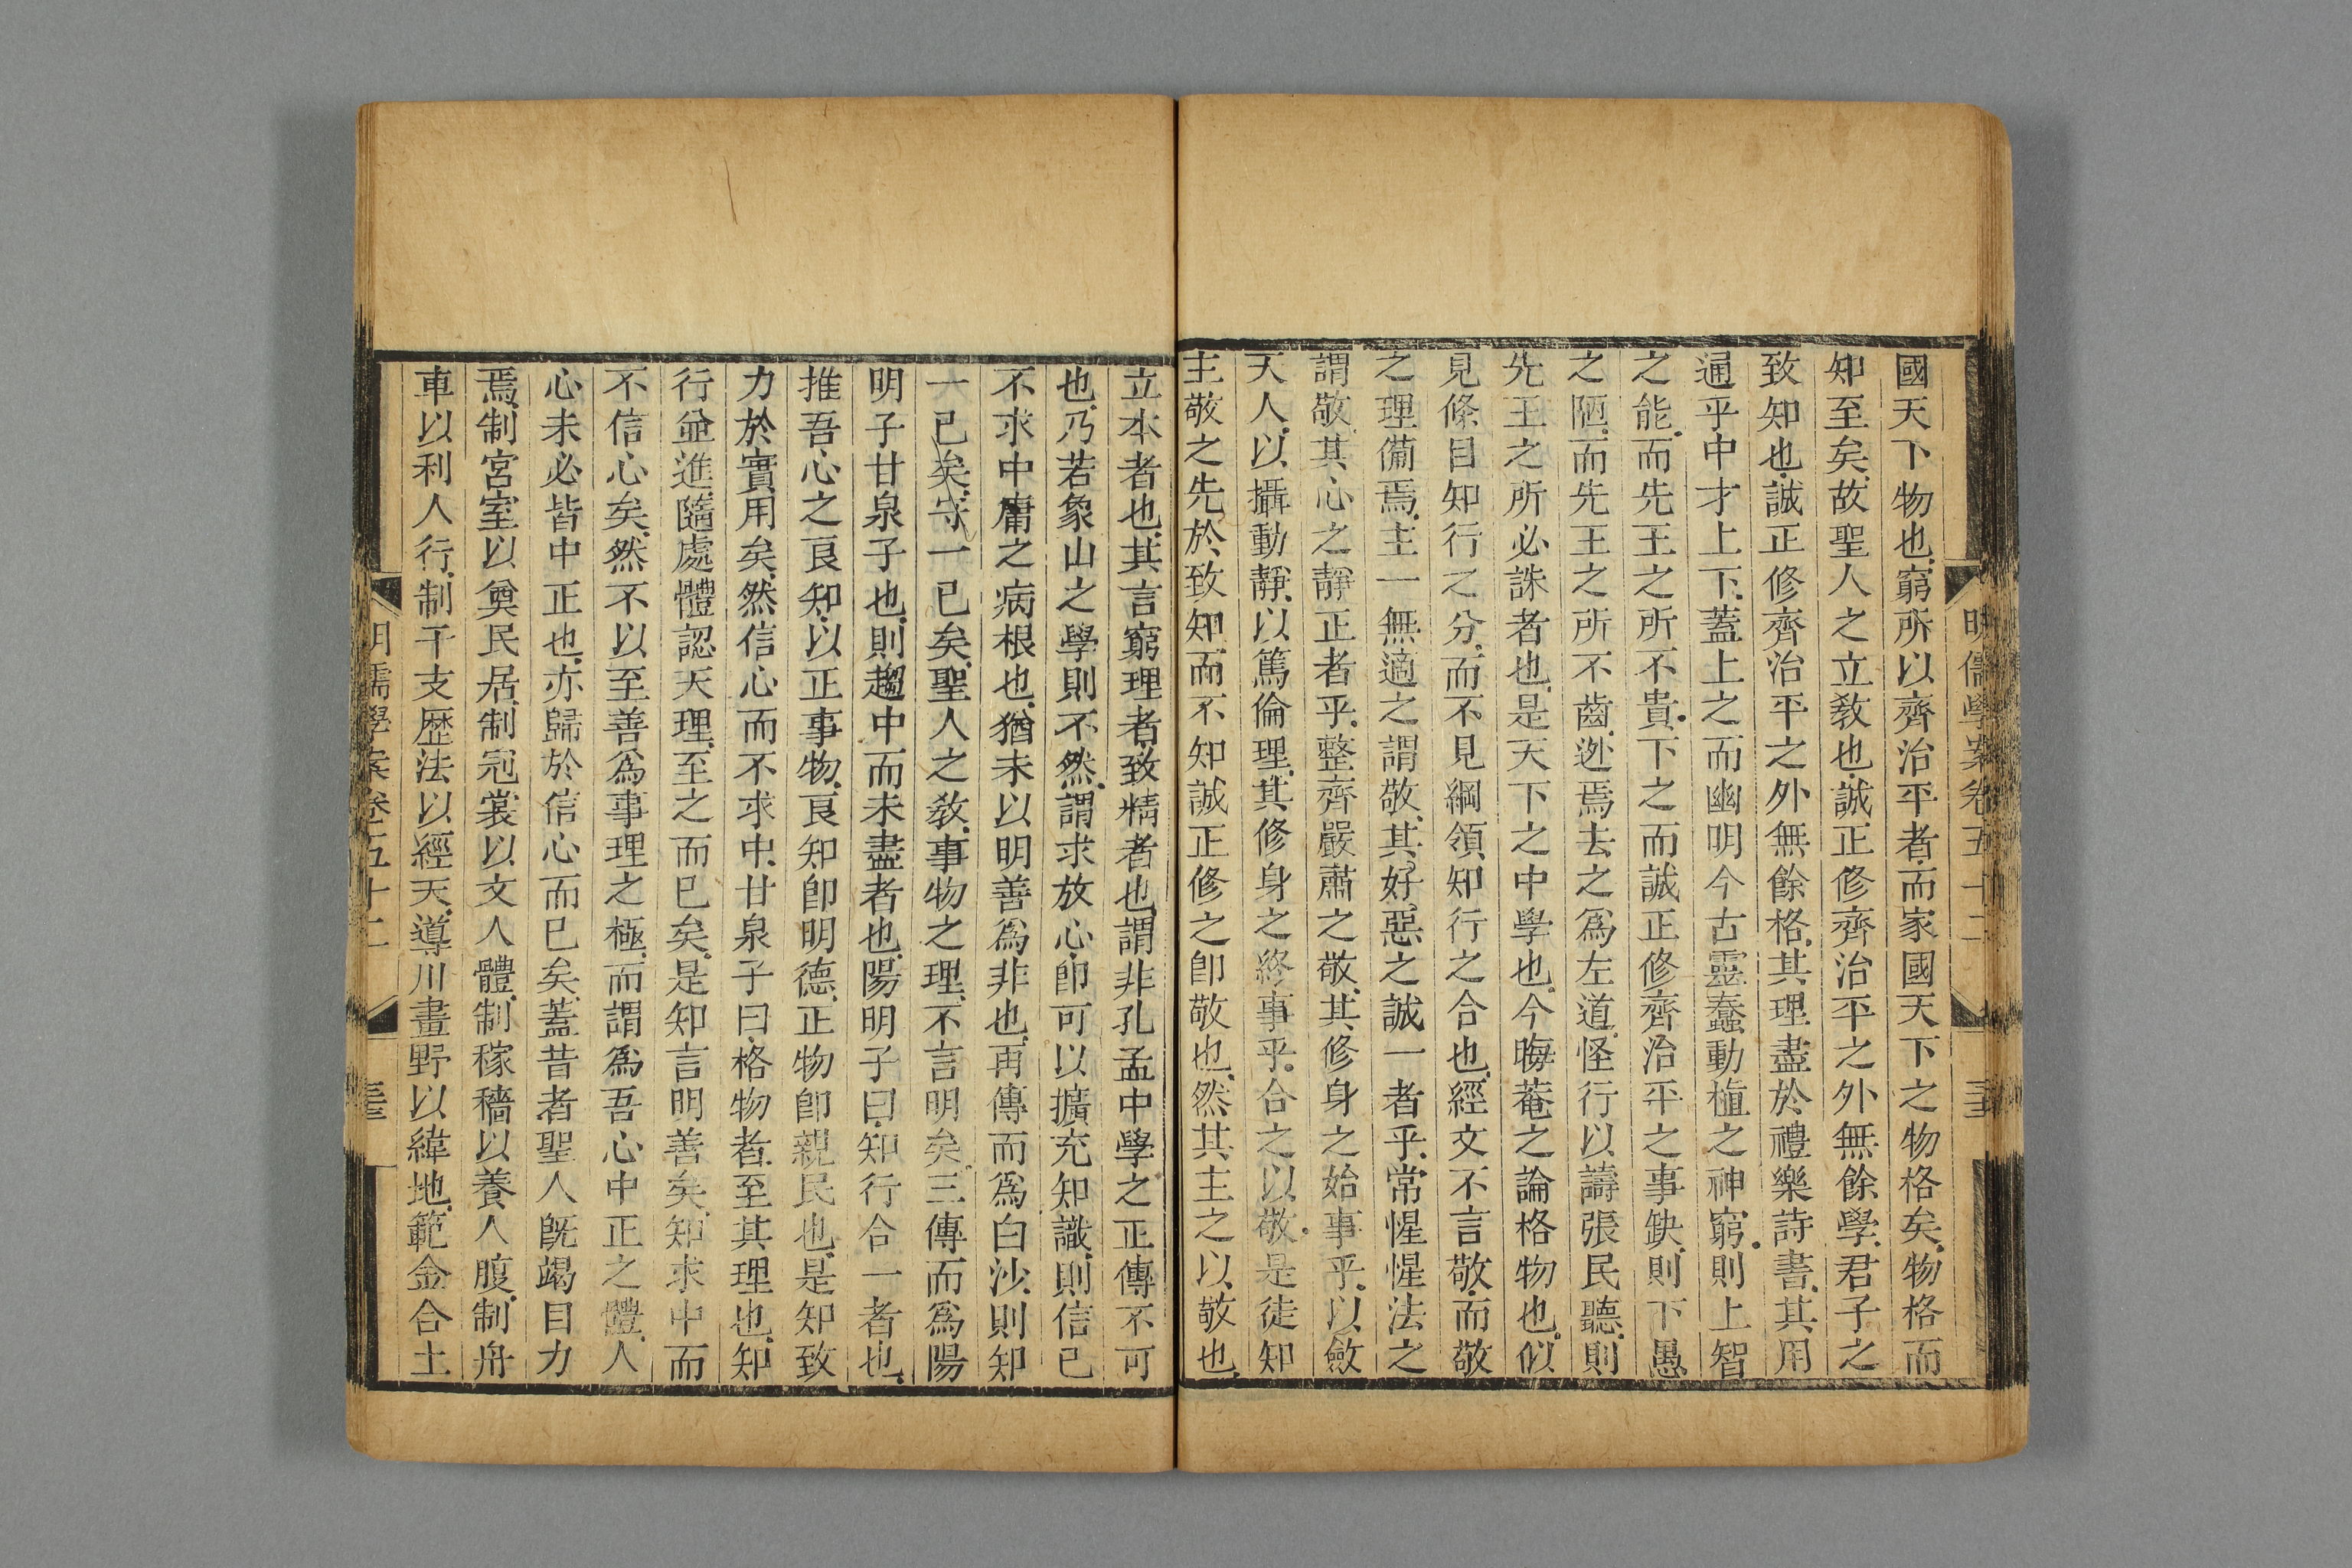 明儒學案卷五十二
國天下物也窮所以齊治平者而家國天下之物格矣物格而
知至矣故聖人之立敎也誠正修齊治平之外無餘學君子之
致知也誠正修齊治平之外無餘格其理盡於禮樂詩書其用
通乎中才上下蓋上之而幽明今古靈蠢動植之神窮則上智
之能而先王之所不貴下之而誠正修齊治平之事缺則下愚
之陋而先王之所不齒逆焉去之爲左道怪行以譸張民聽則
先王之所必誅者也是天下之中學也今晦菴之論格物也似
見條目知行之分而不見綱領知行之合也經文不言敬而敬
之理備焉主一無適之謂敬其好惡之誠一者乎常惺惺法之
謂敬其心之靜正者乎整齊嚴肅之敬其修身之始事乎以斂
天人以攝動靜以篤倫理其修身之終事乎合之以敬是徒知
主敬之先於致知而不知誠正修之卽敬也然其主之以敬也
立本者也其言窮理者致精者也謂非孔孟中學之正傳不可
也乃若象山之學則不然謂求放心卽可以擴充知識則信已
不求中庸之病根也猶未以明善爲非也再傳而爲白沙則知
一已矣守一已矣聖人之敎事物之理不言明矣三傳而爲陽
明子甘泉子也則趨中而未盡者也陽明子曰知行合一者也
推吾心之良知以正事物良知卽明德正物卽親民也是知致
力於實用矣然信心而不求中甘泉子曰格物者至其理也知
行並進隨處體認天理至之而已矣是知言明善矣知求中而
不信心矣然不以至善爲事理之極而謂爲吾心中正之體人
心未必皆中正也亦歸於信心而已矣蓋昔者聖人旣竭目力
焉制宮室以奠民居制冠裳以文人體制稼穡以養人腹制舟
車以利人行制干支歷法以經天導川畫野以緯地範金合土
明儒學案卷五十二